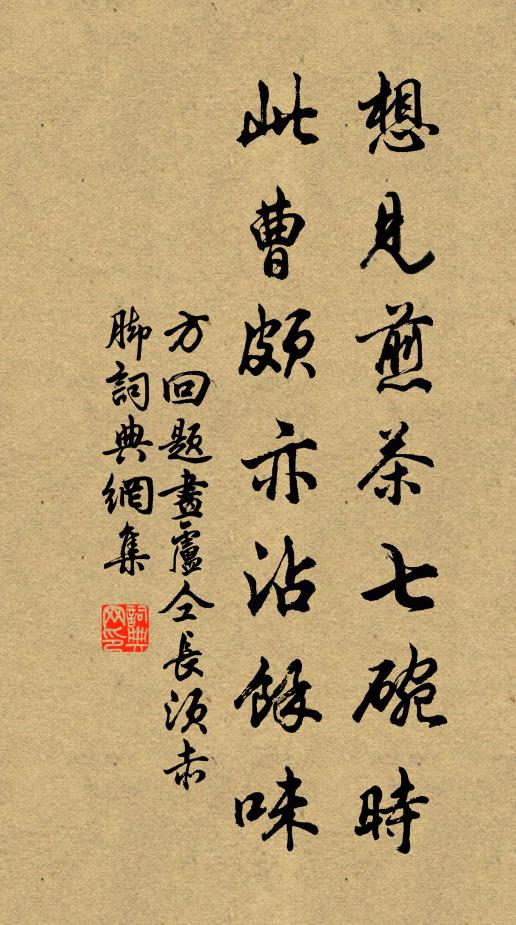 想見煎茶七碗時
此曹頗亦沾餘味
方回題畫盧仝長須赤
脚詞典網集
詞典网印